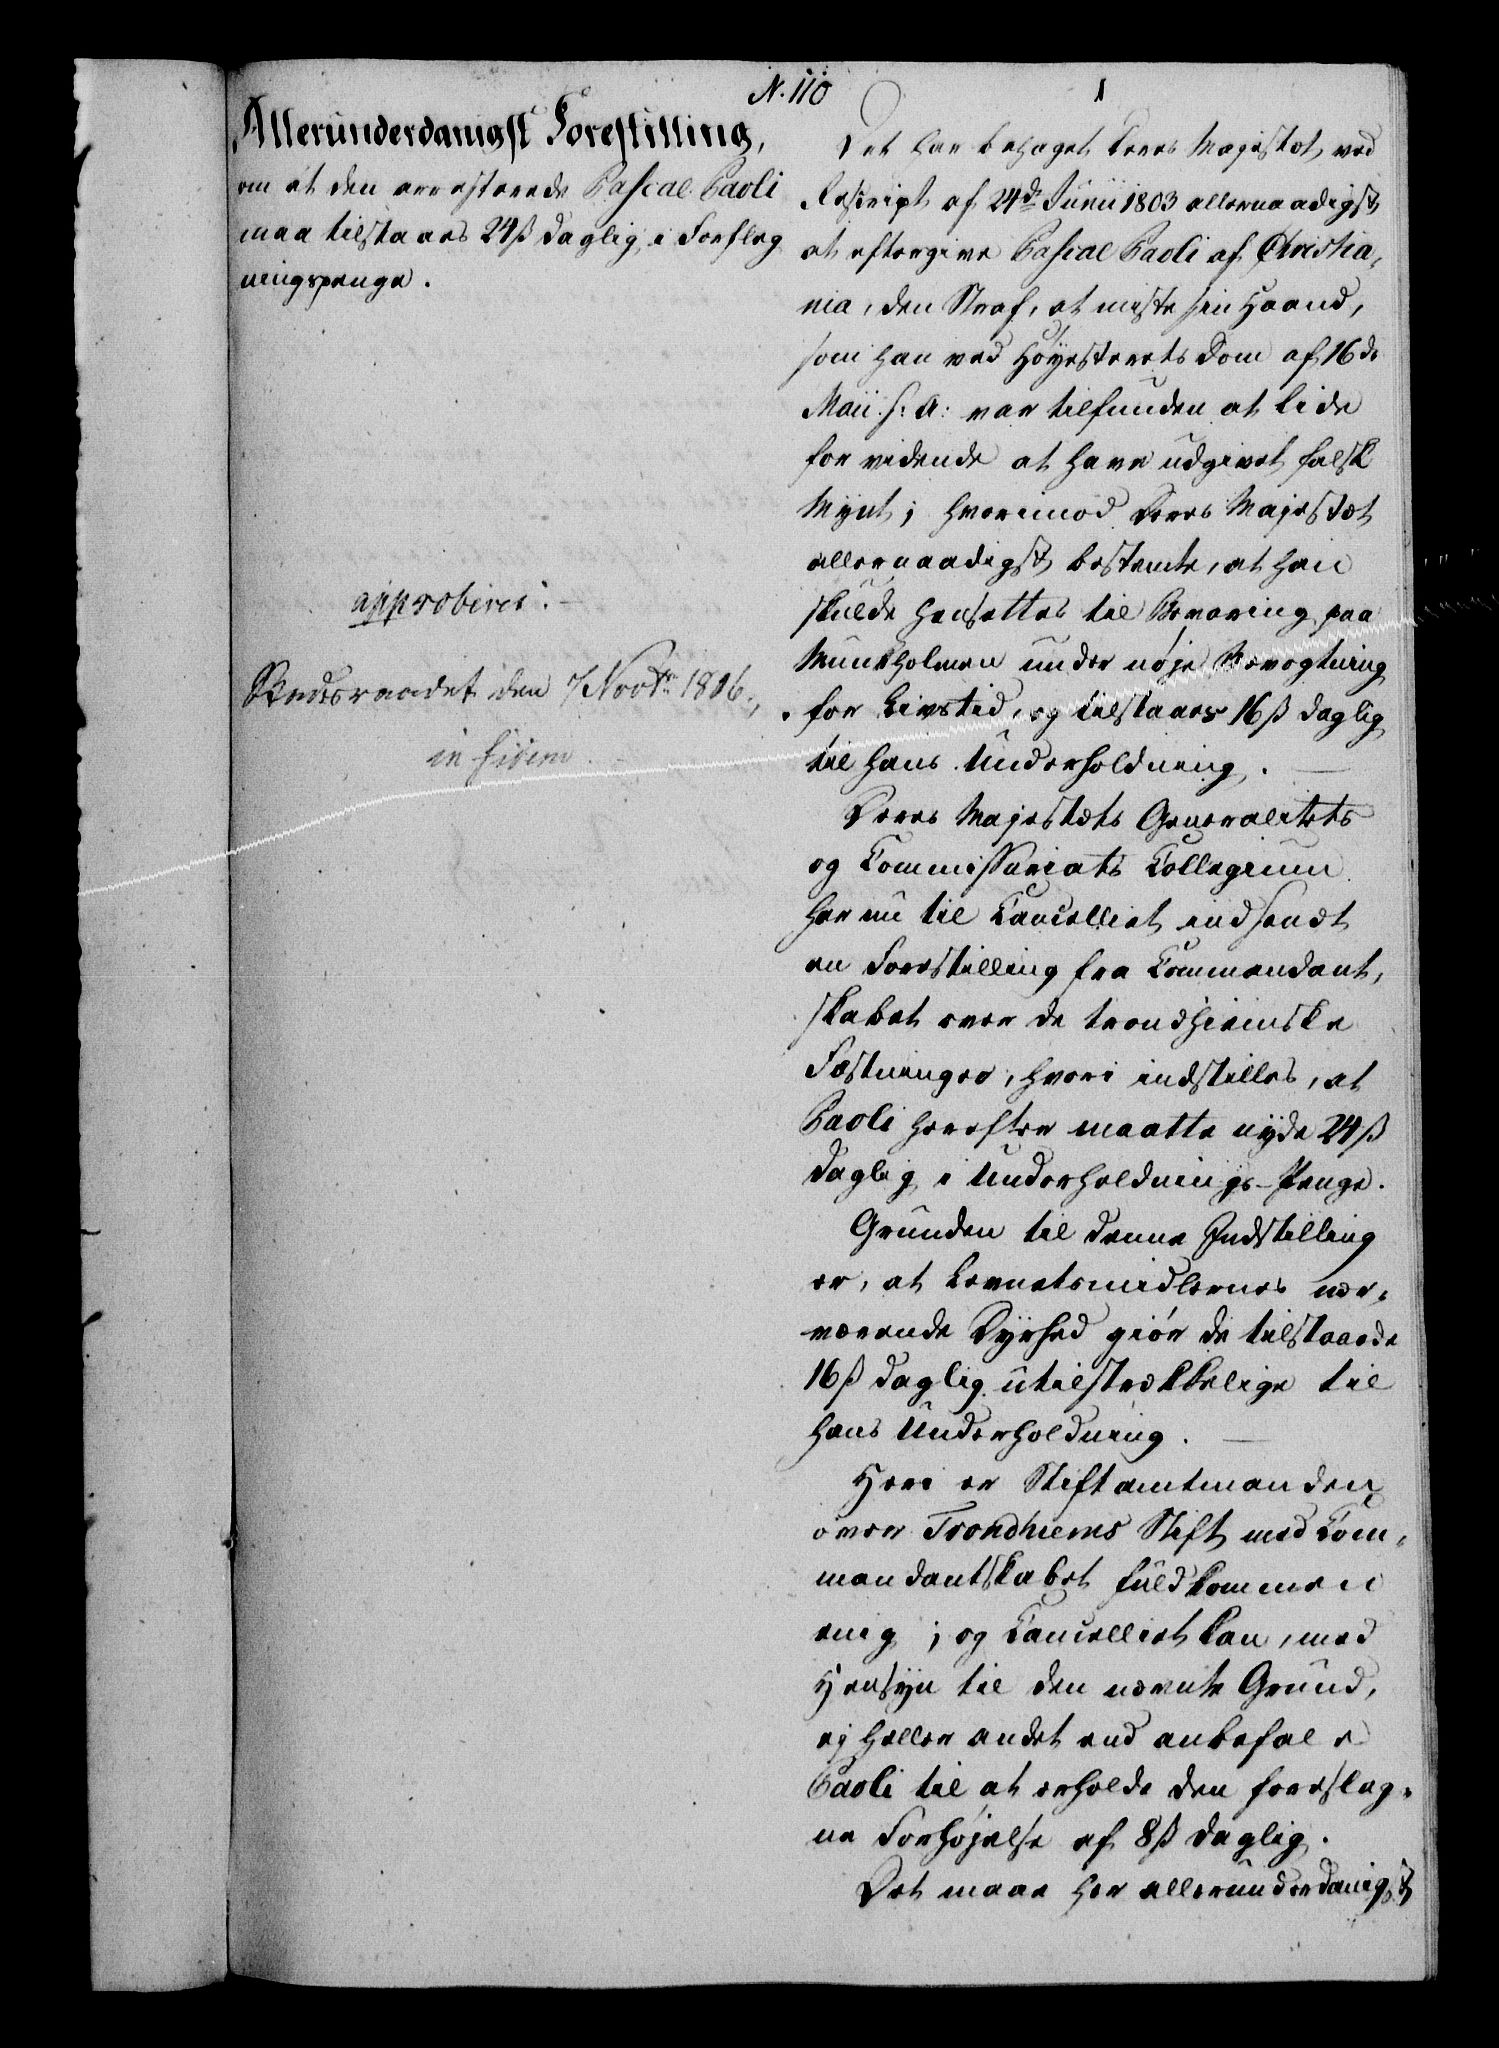 N. 110
1
Allerunderdanigst Forestilling,
om at den arresterede Pascal Paoli
maa tilstaaes 24ß daglig i Forpleg
ningspenge.
approberet.
Stadsraadet den 7 Novbr 1806.
in fidem
Det har behaget Deres Majestæt ved
Rescript af 24de Junii 1803 allernaadigst
at eftergive Pascal Paoli af Christia-
nia, den Straf, at miste sin Haand,
som han ved Høyesterets Dom af 16de
Maii s: A: var tilfunden at lide
for vidende at have udgivet falsk
Mynt; hvorimod Deres Majestæt
allernaadigst bestemte, at han
skulde hensættes til Bevaring paa
Munkholmen under nøje Bevogtning
for Livstid, og tilstaaes 16ß daglig
til hans Underholdning.
Deres Majestæts Generalitets
og Commissariats Collegium
har nu til Cancelliet indsendt
en Forestilling fra Commandant-
skabet over de trondhiemske
Fæstninger, hvori indstilles, at
Paoli herefter maatte nyde 24ß
daglig i Underholdnings-Penge.
Grunden til denne Indstilling
er, at Levnetsmidlernes nær-
værende Dyrhed giør de tilstaaede
16ß daglig utilstrækkelige til
hans Underholdning.
Heri er Stiftamtmanden
over Trondhiems Stift med Com-
mandantskabet fuldkommen
enig; og Cancelliet kan, med
Hensyn til den nævnte Grund,
ej heller andet end anbefale
Paoli til at erholde den foreslag-
ne Forhøjelse af 8ß daglig.
Det maae her allerunderdanigst